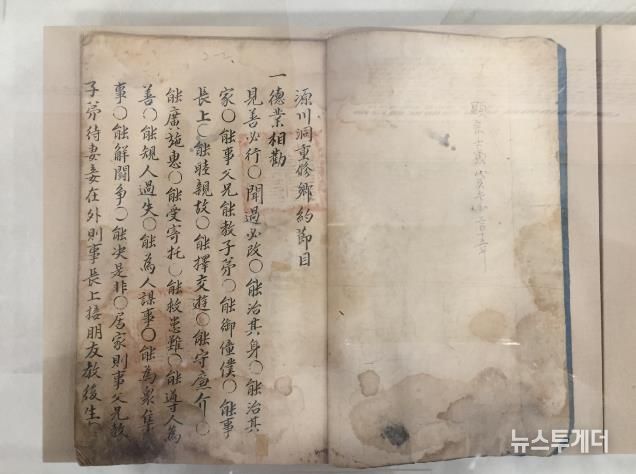 源川洞重修鄉約節目
一德業相勸
見善必行○聞過必改○能治其身○能治其
家○能事父兄能教子弟○能御僮僕○能事
長上○能睦親故○能擇交遊○能守廉介○
能廣施惠○能受寄托○能救患難○能導人為
善○能規人過失○能為人謀事○能為衆集
事○能解鬪爭○能决是非○居家則事父兄教
子弟待妻妾在外則事長上接朋友教後生
뉴스투게더